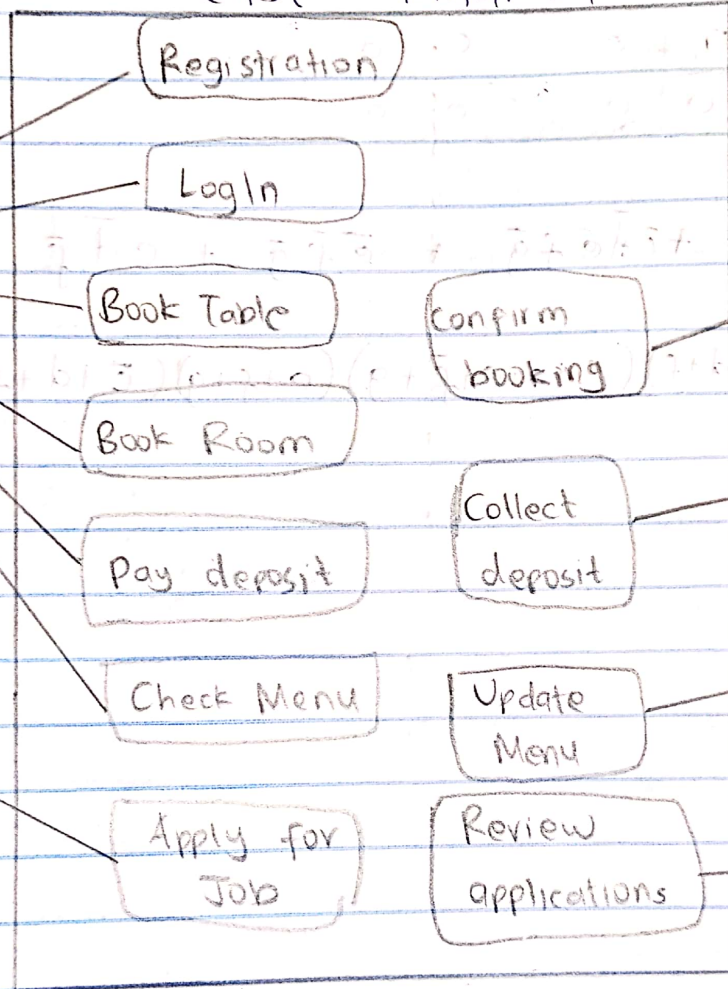 Registration
LogIn
Book Table
Book Room
Pay deposit
Check Menu
Apply for
Job
Confirm
booking
Collect
deposit
Update
Menu
Review
applications